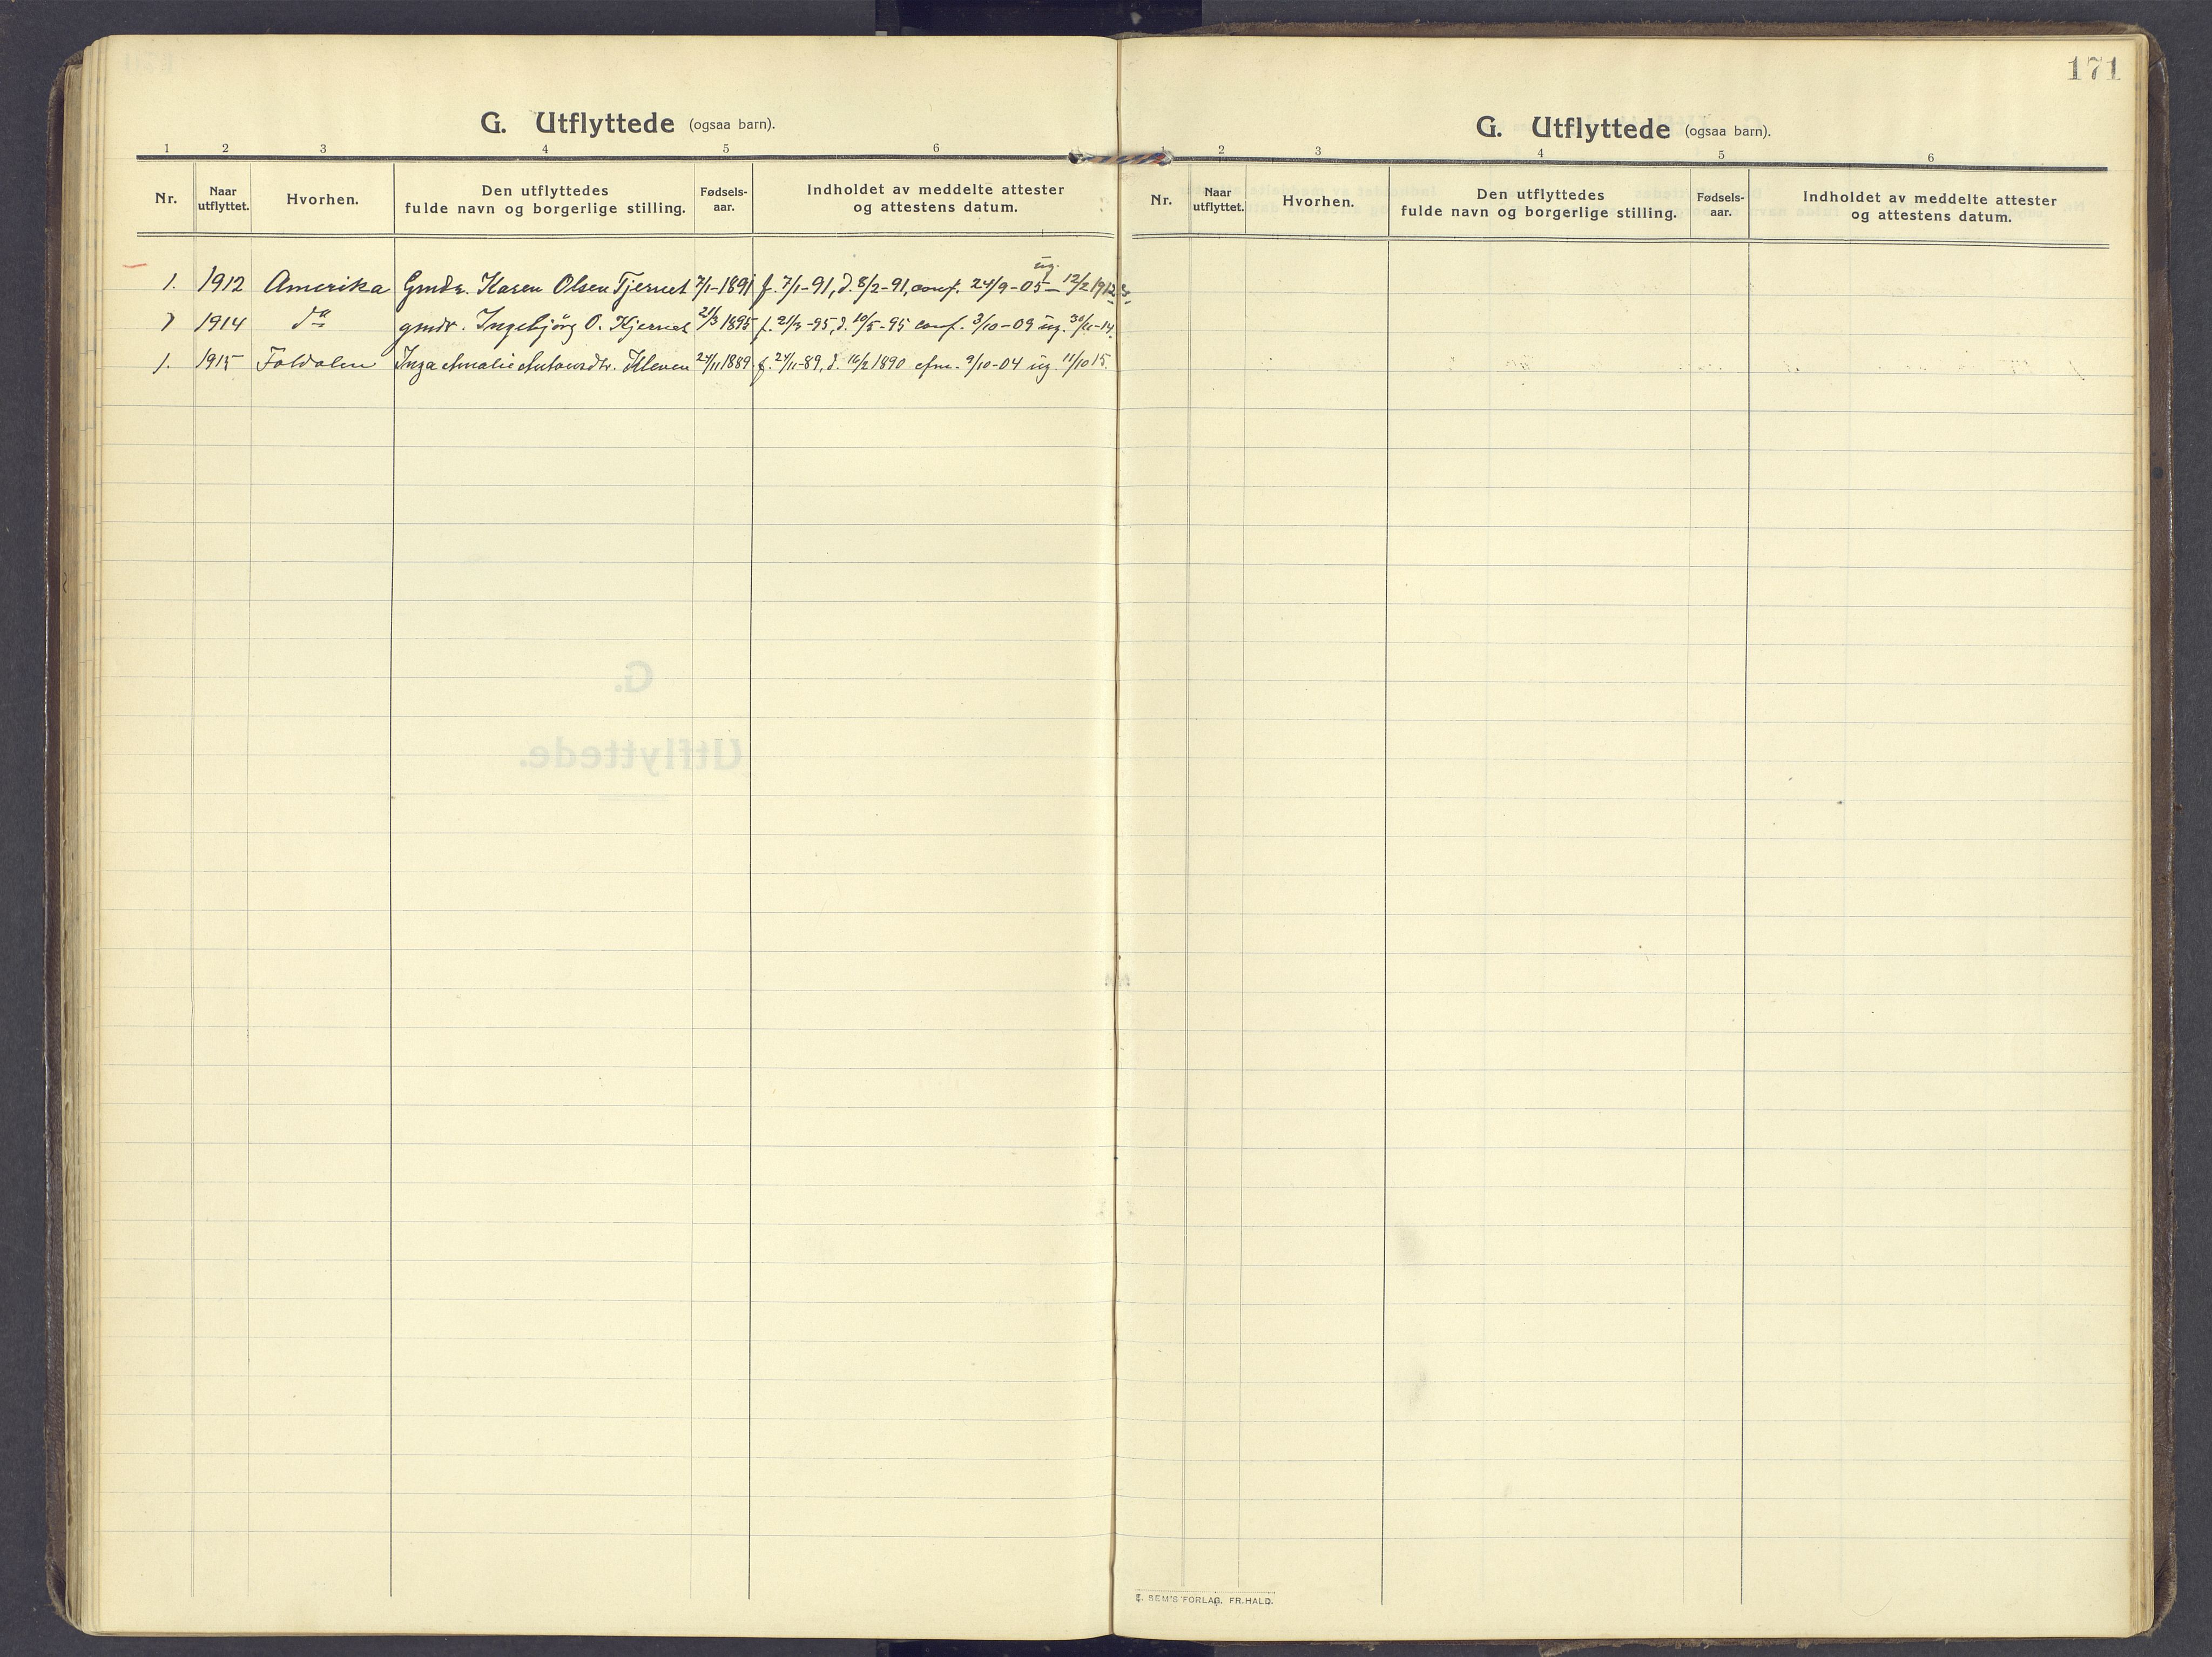 171
G. Utflyttede (ogsaa barn).
1 2 3 4 5 6
Nr. Naar utflyttet. Hvorhen. Den utflyttedes fulde navn og borgerlige stilling. Fødsels-aar. Indholdet av meddelte attester og attestens datum.
1. 1912 Amerika Gmdr. Karen Olsen Tjernet 7/1-1891 f. 7/1-91, d. 8/2-91, conf. 24/9-05 ug. 12/2 1912
1 1914 do gmdr. Ingebjörg O. Kjernet 21/3 1895 f. 21/3-95, d. 10/5-95 conf. 3/10-09 ug. 30/11-14.
1. 1915 Foldalen Inga Amalie Antonsdtr. Kleven 24/11 1889 f. 24/11-89, d. 16/2 1890 cfm. 9/10-04 ug. 11/10 15.
G. Utflyttede (ogsaa barn).
1 2 3 4 5 6
Nr. Naar utflyttet. Hvorhen. Den utflyttedes fulde navn og borgerlige stilling. Fødsels-aar. Indholdet av meddelte attester og attestens datum.
E. SEM'S FORLAG. FR. HALD.